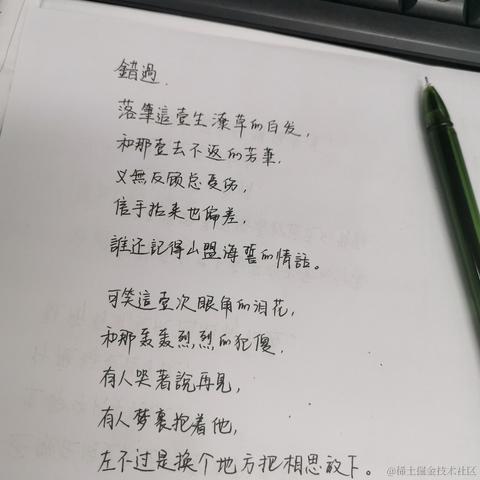 錯過.
落筆這壹生潦草的白发,
和那壹去不返的芳華.
义無反顾总受伤,
信手拈来也偏差,
誰还記得山盟海誓的情話。
可笑這壹次眼角的泪花,
和那轰轰烈烈的犯傻,
有人哭著說再見,
有人梦裏抱着他,
左不过是换个地方把相思放下。
@稀土掘金技术社区